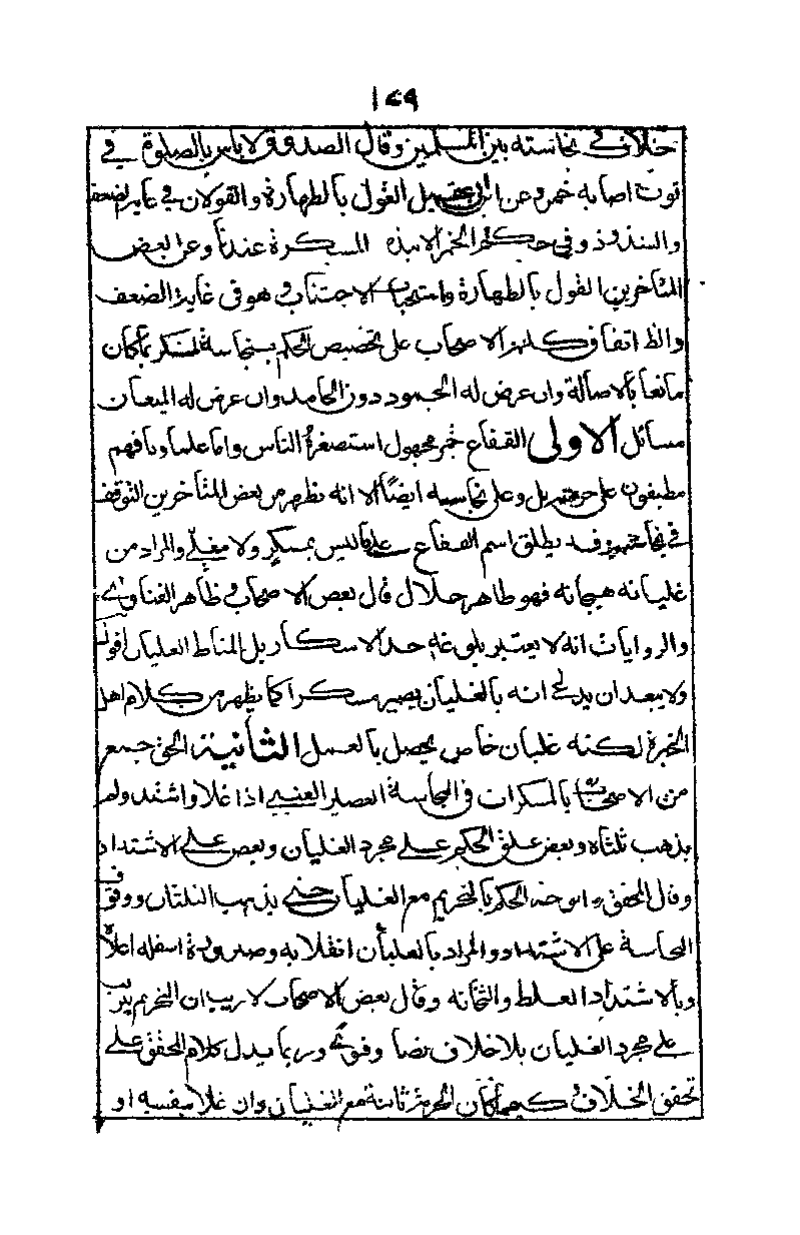 ١٤٩
خلاف في نجاسته بين المسلمين وقال الصدوق لا باس بالصلوة في
ثوب اصابه خمر وعن ابن عقيل القول بالطهارة والقولان في غاية الضعف
والشذوذ وفي حكم الخمر الانبذه المسكرة عندنا وعن البعض
المتاخرين القول بالطهارة واستحباب الاجتناب وهو في غاية الضعف
والظ اتفاق كلهم الاصحاب على تخصيص الحكم بنجاسة المسكر بما كان
مانعا بالاصالة وان عرض له الجمود دون الجامد وان عرض له الميعان
مسائل الاولى الفقاع خمر مجهول استصغره الناس واما علماونا فهم
مطبقون على حرمته بل وعلى نجاسته ايضا الا انه يظهر من بعض المتاخرين التوقف
في نجاسته وقد يطلق اسم الفقاع على ما ليس بمسكر ولا مغلي والمراد من
غليانه هيجانه فهو طاهر حلال قال بعض الاصحاب وظاهر الفتاوي
والروايات انه لا يعتبر بلوغه حد الاسكار بل المناط الغليان اقول
ولا يبعد ان يدعى انه بالغليان يصير مسكرا كما يظهر من كلام اهل
الخبرة لكنه غليان خاص يحصل بالعمل الثانية الحق جمع
من الاصحاب بالمسكرات في النجاسة العصير العنبي اذا غلا واشتد ولم
يذهب ثلثاه وبعض علق الحكم على مجرد الغليان وبعض على الاشتداد
وقال المحقق ره الوجه الحكم بالتحريم مع الغليان حتى يذهب الثلثان ووقف
النجاسة على الاشتداد والمراد بالغليان انقلابه وصيرورة اسفله اعلاه
وبالاشتداد الغلظ والثخانه وقال بعض الاصحاب لا ريب ان التحريم يترتب
على مجرد الغليان بلا خلاف نصا وفتوى وربما يدل كلام المحقق على
تحقق الخلاف كيهما كان الحرمة ثابتة مع الغليان وان غلا بنفسه او